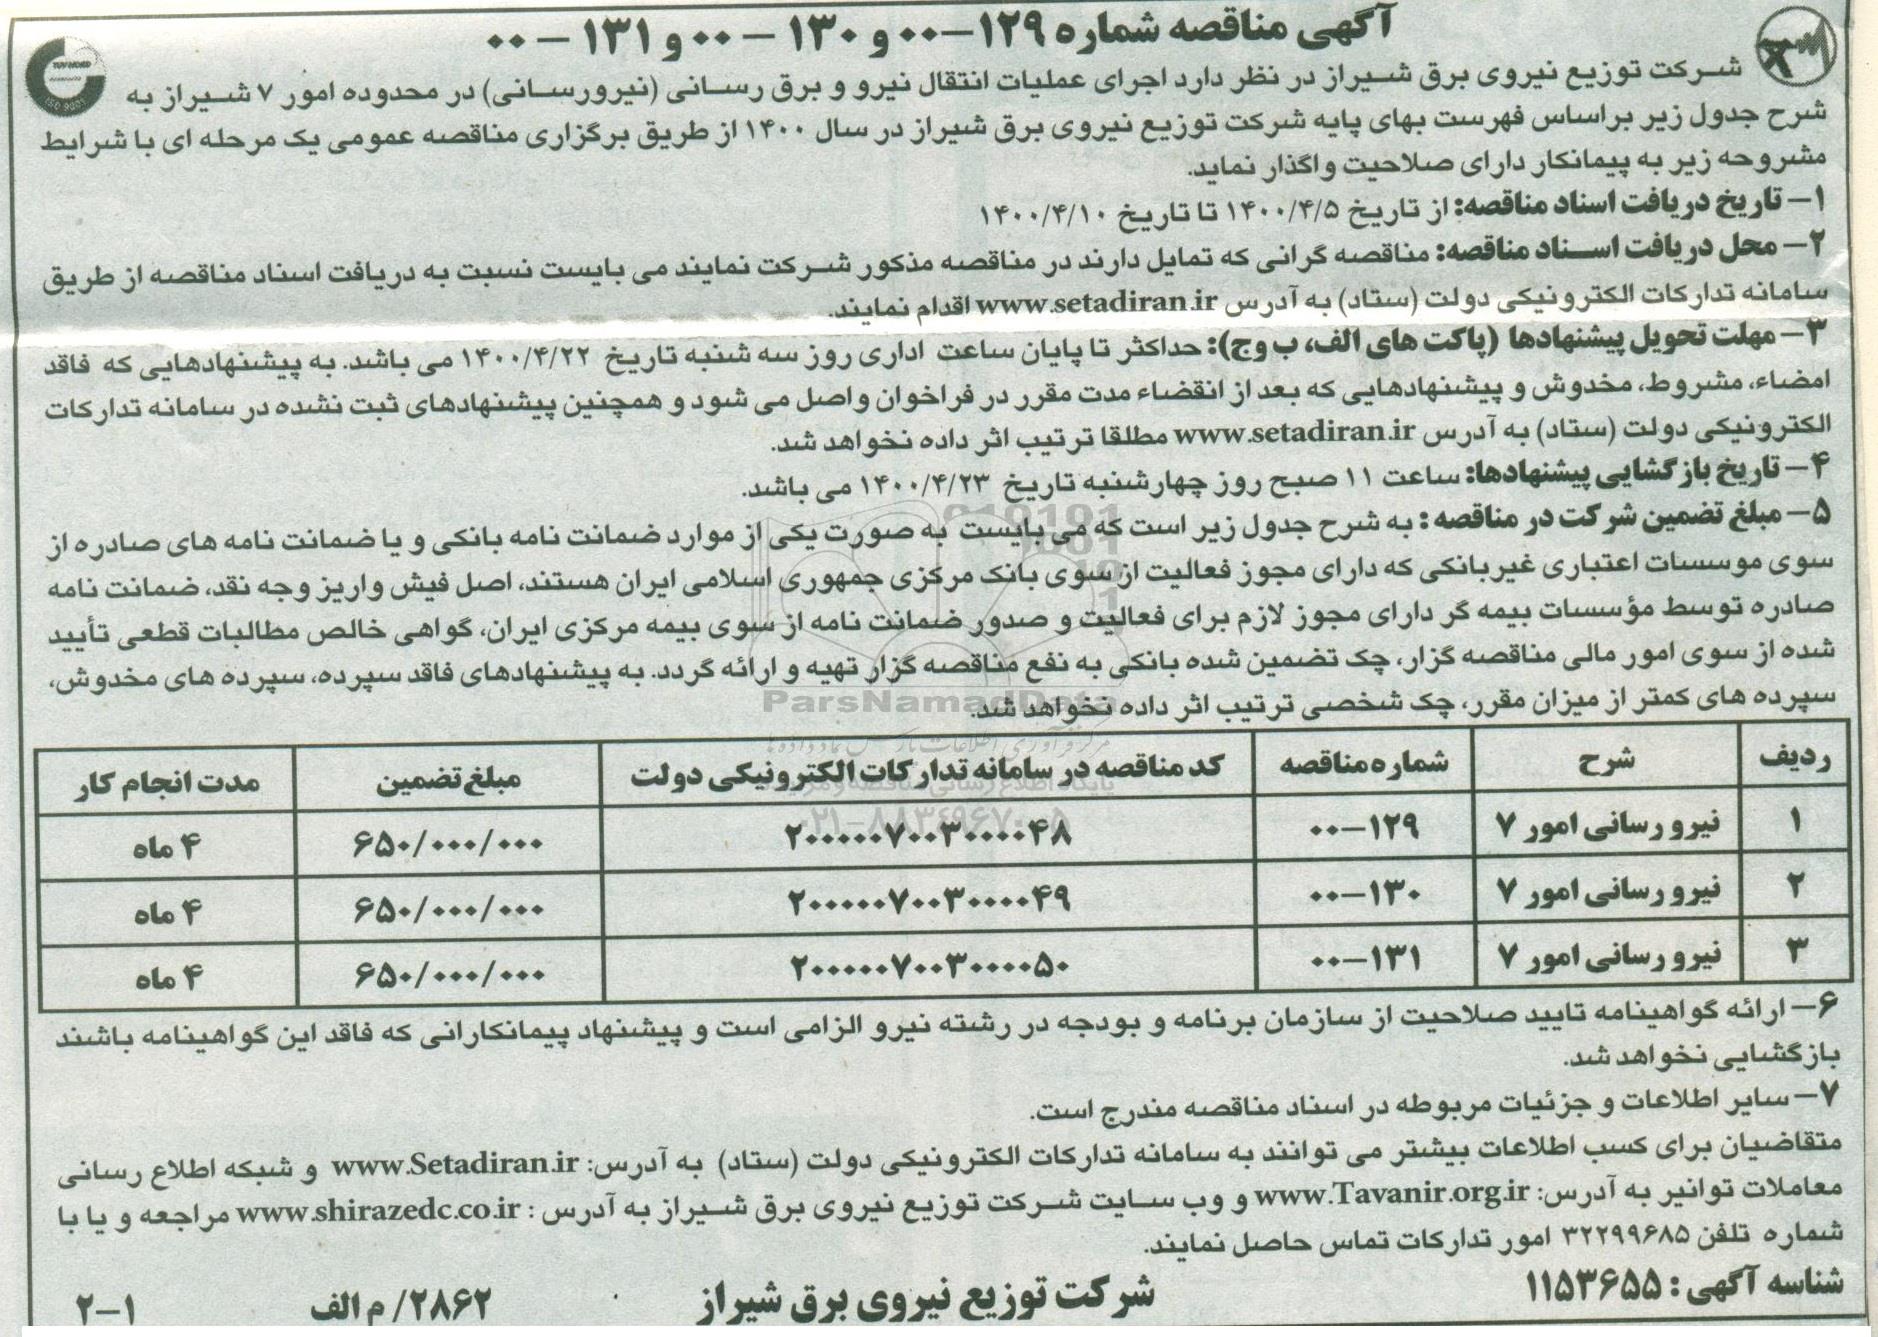 آگهی مناقصه شماره ۱۲۹-۰۰ و ۱۳۰-۰۰ و ۱۳۱-۰۰
شرکت توزیع نیروی برق شیراز در نظر دارد اجرای عملیات انتقال نیرو و برق رسانی (نیرورسانی) در محدوده امور ۷ شیراز به
شرح جدول زیر براساس فهرست بهای پایه شرکت توزیع نیروی برق شیراز در سال ۱۴۰۰ از طریق برگزاری مناقصه عمومی یک مرحله ای با شرایط
مشروحه زیر به پیمانکار دارای صلاحیت واگذار نماید.
۱- تاریخ دریافت اسناد مناقصه: از تاریخ ۱۴۰۰/۴/۵ تا تاریخ ۱۴۰۰/۴/۱۰
۲- محل دریافت اسناد مناقصه: مناقصه گرانی که تمایل دارند در مناقصه مذکور شرکت نمایند می بایست نسبت به دریافت اسناد مناقصه از طریق
سامانه تدارکات الکترونیکی دولت (ستاد) به آدرس www.setadiran.ir اقدام نمایند.
۳- مهلت تحویل پیشنهادها (پاکت های الف، ب وج): حداکثر تا پایان ساعت اداری روز سه شنبه تاریخ ۱۴۰۰/۴/۲۲ می باشد. به پیشنهادهایی که فاقد
امضاء، مشروط، مخدوش و پیشنهادهایی که بعد از انقضاء مدت مقرر در فراخوان واصل می شود و همچنین پیشنهادهای ثبت نشده در سامانه تدارکات
الکترونیکی دولت (ستاد) به آدرس www.setadiran.ir مطلقا ترتیب اثر داده نخواهد شد.
۴- تاریخ بازگشایی پیشنهادها: ساعت ۱۱ صبح روز چهارشنبه تاریخ ۱۴۰۰/۴/۲۳ می باشد.
۵- مبلغ تضمین شرکت در مناقصه : به شرح جدول زیر است که می بایست به صورت یکی از موارد ضمانت نامه بانکی و یا ضمانت نامه های صادره از
سوی موسسات اعتباری غیربانکی که دارای مجوز فعالیت از سوی بانک مرکزی جمهوری اسلامی ایران هستند، اصل فیش واریز وجه نقد، ضمانت نامه
صادره توسط مؤسسات بیمه گر دارای مجوز لازم برای فعالیت و صدور ضمانت نامه از سوی بیمه مرکزی ایران، گواهی خالص مطالبات قطعی تأیید
شده از سوی امور مالی مناقصه گزار، چک تضمین شده بانکی به نفع مناقصه گزار تهیه و ارائه گردد. به پیشنهادهای فاقد سپرده، سپرده های مخدوش،
سپرده های کمتر از میزان مقرر، چک شخصی ترتیب اثر داده نخواهد شد.
ParsNamadData
ردیف شرح شماره مناقصه کد مناقصه در سامانه تدارکات الکترونیکی دولت مبلغ تضمین مدت انجام کار
۱ نیرو رسانی امور ۷ ۱۲۹-۰۰ ۲۰۰۰۰۰۷۰۰۳۰۰۰۰۴۸ ۶۵۰/۰۰۰/۰۰۰ ۴ ماه
۲ نیرو رسانی امور ۷ ۱۳۰-۰۰ ۲۰۰۰۰۰۷۰۰۳۰۰۰۰۴۹ ۶۵۰/۰۰۰/۰۰۰ ۴ ماه
۳ نیرو رسانی امور ۷ ۱۳۱-۰۰ ۲۰۰۰۰۰۷۰۰۳۰۰۰۰۵۰ ۶۵۰/۰۰۰/۰۰۰ ۴ ماه
۶- ارائه گواهینامه تایید صلاحیت از سازمان برنامه و بودجه در رشته نیرو الزامی است و پیشنهاد پیمانکارانی که فاقد این گواهینامه باشند
بازگشایی نخواهد شد.
۷- سایر اطلاعات و جزئیات مربوطه در اسناد مناقصه مندرج است.
متقاضیان برای کسب اطلاعات بیشتر می توانند به سامانه تدارکات الکترونیکی دولت (ستاد) به آدرس: www.Setadiran.ir و شبکه اطلاع رسانی
معاملات توانیر به آدرس: www.Tavanir.org.ir و وب سایت شرکت توزیع نیروی برق شیراز به آدرس : www.shirazedc.co.ir مراجعه و یا با
شماره تلفن ۳۲۲۹۹۶۸۵ امور تدارکات تماس حاصل نمایند.
شناسه آگهی : ۱۱۵۳۶۵۵ شرکت توزیع نیروی برق شیراز ۲۸۶۲/ م الف ۲-۱